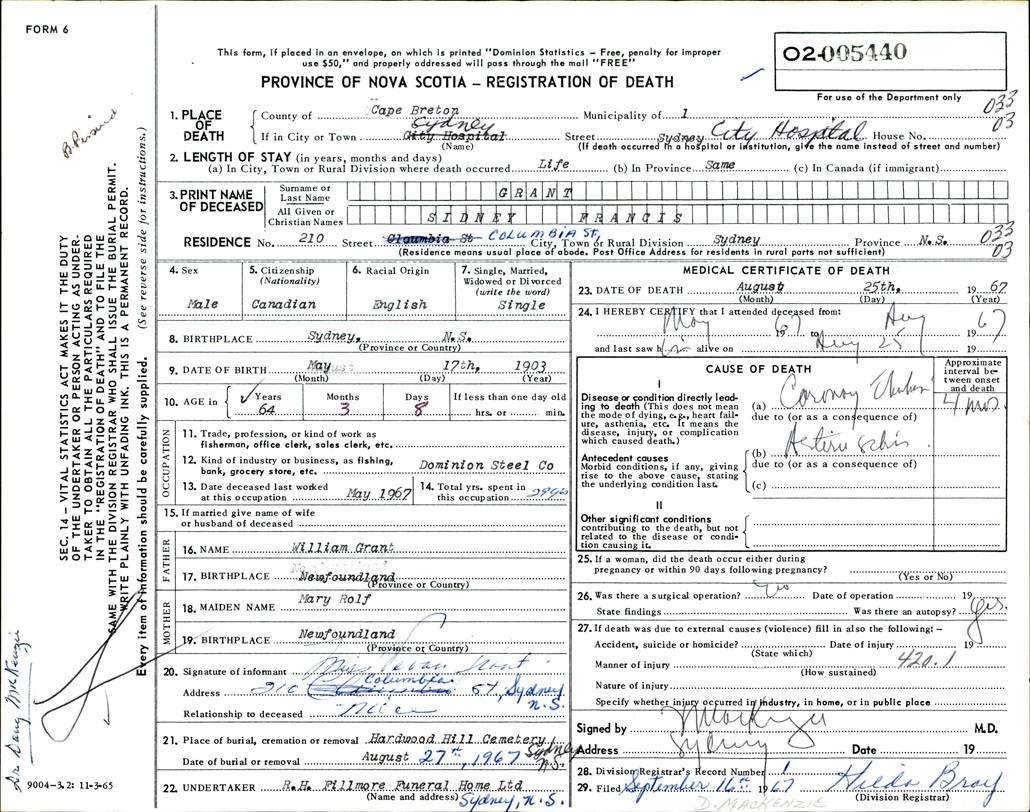 FORM 6
This form, if placed in an envelope, on which is printed "Dominion Statistics – Free, penalty for improper
use $50," and properly addressed will pass through the mail "FREE"
02-005440
PROVINCE OF NOVA SCOTIA – REGISTRATION OF DEATH
For use of the Department only
033
03
1. PLACE OF DEATH
County of Cape Breton Municipality of 1
If in City or Town Sydney City Hospital Street Sydney City Hospital House No.
(Name) (If death occurred in a hospital or institution, give the name instead of street and number)
2. LENGTH OF STAY (in years, months and days)
(a) In City, Town or Rural Division where death occurred Life (b) In Province Same (c) In Canada (if immigrant)
3. PRINT NAME OF DECEASED
Surname or Last Name GRANT
All Given or Christian Names SIDNEY FRANCIS
RESIDENCE No. 210 Street Cloumbia St COLUMBIA ST, City, Town or Rural Division Sydney Province N.S.
033
03
(Residence means usual place of abode. Post Office Address for residents in rural parts not sufficient)
4. Sex
Male
5. Citizenship (Nationality)
Canadian
6. Racial Origin
English
7. Single, Married, Widowed or Divorced (write the word)
Single
8. BIRTHPLACE Sydney, N.S.
(Province or Country)
9. DATE OF BIRTH May 17th, 1903
(Month) (Day) (Year)
10. AGE in
Years 64
Months 3
Days 8
If less than one day old
hrs. or min.
OCCUPATION
11. Trade, profession, or kind of work as
fisherman, office clerk, sales clerk, etc.
12. Kind of industry or business, as fishing,
bank, grocery store, etc. Dominion Steel Co
13. Date deceased last worked
at this occupation May 1967
14. Total yrs. spent in
this occupation
15. If married give name of wife
or husband of deceased
FATHER
16. NAME William Grant
17. BIRTHPLACE Newfoundland
(Province or Country)
MOTHER
18. MAIDEN NAME Mary Rolf
19. BIRTHPLACE Newfoundland
(Province or Country)
20. Signature of informant Miss Grant
Address 210 Columbia St, Sydney N.S.
Relationship to deceased Niece
21. Place of burial, cremation or removal Hardwood Hill Cemetery Sydney N.S.
Date of burial or removal August 27th, 1967
22. UNDERTAKER R.H. Fillmore Funeral Home Ltd
(Name and address) Sydney, N.S.
MEDICAL CERTIFICATE OF DEATH
23. DATE OF DEATH August 25th, 1967
(Month) (Day) (Year)
24. I HEREBY CERTIFY that I attended deceased from:
May 1967 to Aug 1967
and last saw him alive on Aug 25 19
CAUSE OF DEATH
Approximate interval between onset and death
I
Disease or condition directly leading to death (This does not mean the mode of dying, e.g., heart failure, asthenia, etc. It means the disease, injury, or complication which caused death.)
(a) Coronary 4 mos.
due to (or as a consequence of)
Antecedent causes
Morbid conditions, if any, giving rise to the above cause, stating the underlying condition last.
(b)
due to (or as a consequence of)
(c)
II
Other significant conditions
contributing to the death, but not related to the disease or condition causing it.
25. If a woman, did the death occur either during
pregnancy or within 90 days following pregnancy?
(Yes or No)
26. Was there a surgical operation? No Date of operation 19
State findings Was there an autopsy? yes.
27. If death was due to external causes (violence) fill in also the following: –
Accident, suicide or homicide? Date of injury 19
(State which)
Manner of injury 420.1
(How sustained)
Nature of injury
Specify whether injury occurred in industry, in home, or in public place
Signed by M.D.
Address Sydney Date 19
28. Division Registrar's Record Number 1
29. Filed September 16th 1967 Hilda Bray
(Division Registrar)
D. MACKENZIE
SEC. 14 – VITAL STATISTICS ACT MAKES IT THE DUTY
OF THE UNDERTAKER OR PERSON ACTING AS UNDER-
TAKER TO OBTAIN ALL THE PARTICULARS REQUIRED
IN THE "REGISTRATION OF DEATH" AND TO FILE THE
SAME WITH THE DIVISION REGISTRAR WHO SHALL ISSUE THE BURIAL PERMIT.
WRITE PLAINLY WITH UNFADING INK. THIS IS A PERMANENT RECORD.
Every item of information should be carefully supplied. (See reverse side for instructions.)
Dr Doug MacKenzie
9004-3.2: 11-3-65